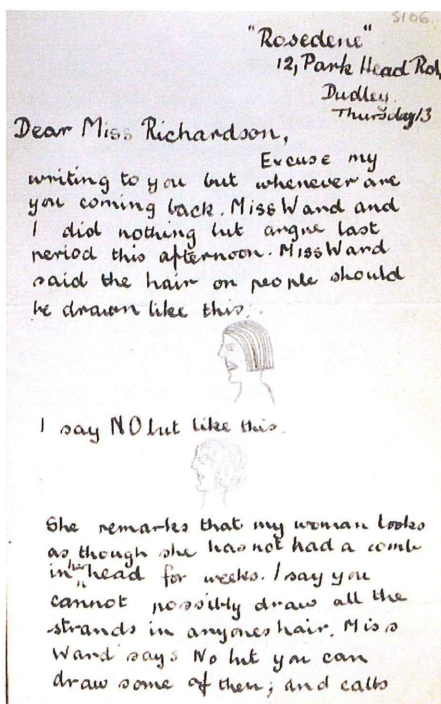 5106
"Rosedene"
12, Park Head Rd,
Dudley.
Thursday 13
Dear Miss Richardson,
Excuse my
writing to you but whenever are
you coming back. Miss Ward and
I did nothing but argue last
period this afternoon. Miss Ward
said the hair on people should
be drawn like this.
I say NO but like this.
She remarks that my woman looks
as though she has not had a comb
in her head for weeks. I say you
cannot possibly draw all the
strands in anyones hair. Miss
Ward says No but you can
draw some of them; and calls